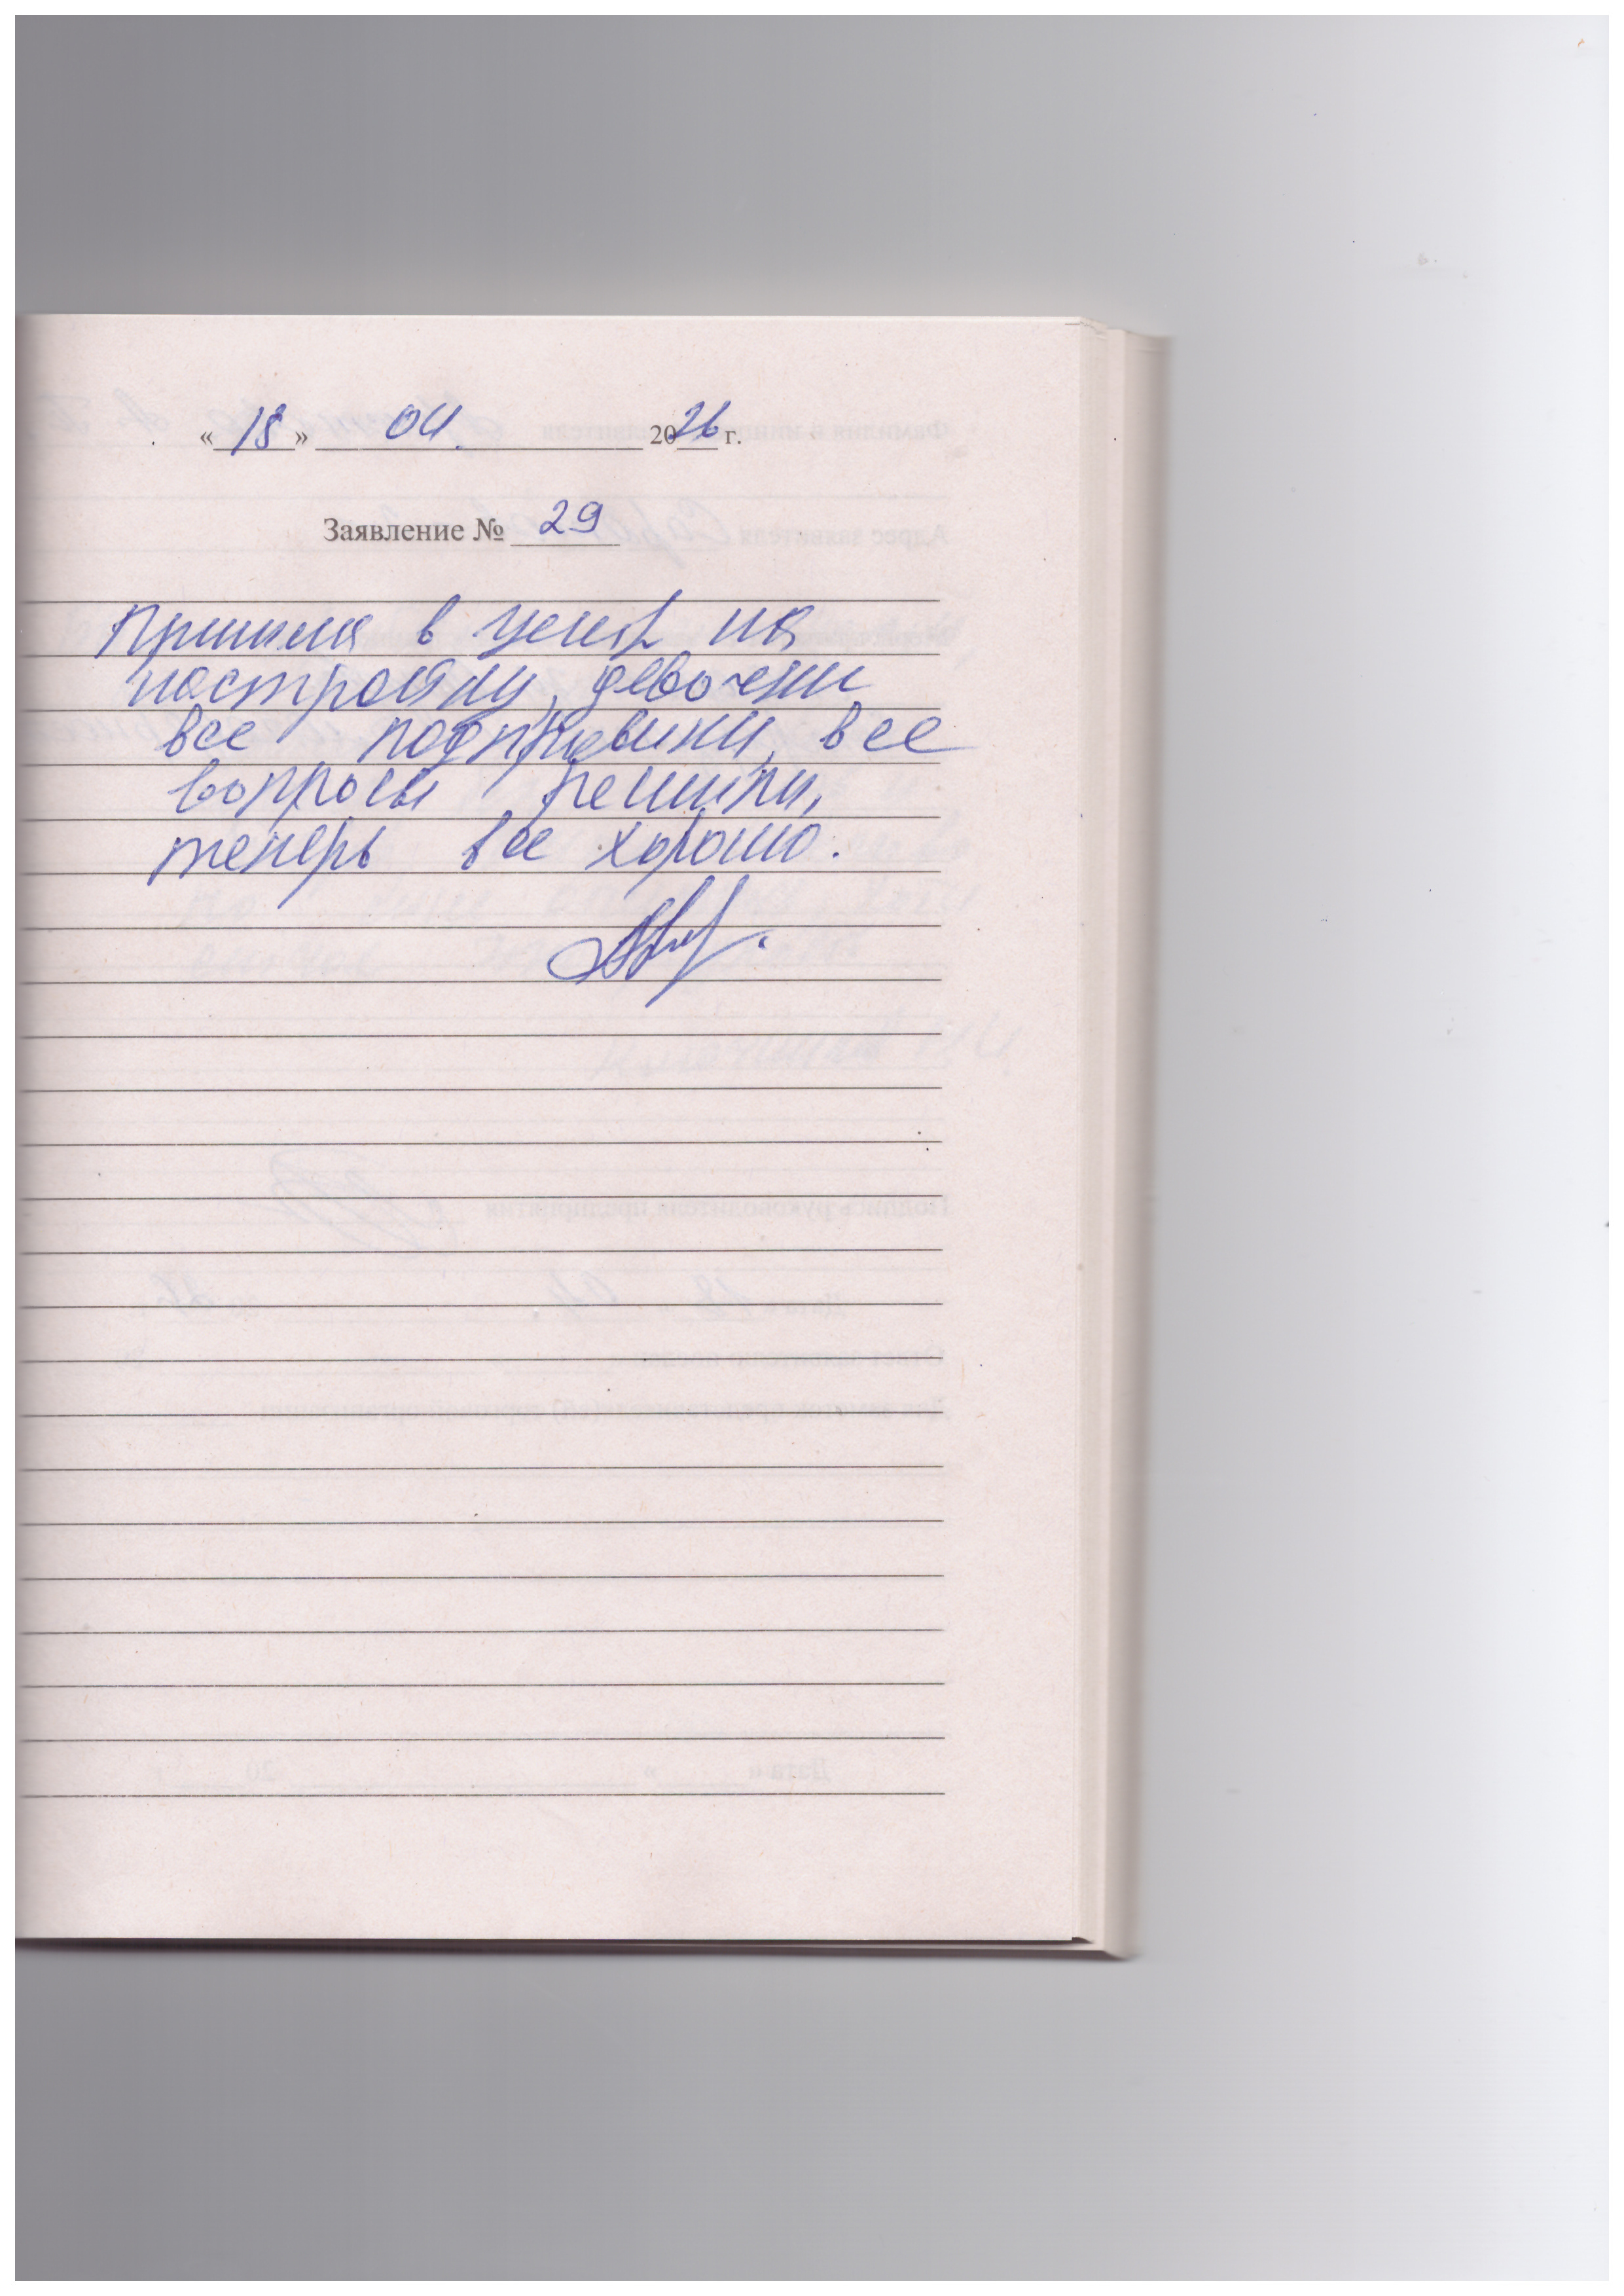 «18» 04. 2026 г.
Заявление № 29
Пришла в центр на
настройку, девочки
все подправили, все
вопросы решили,
теперь все хорошо.